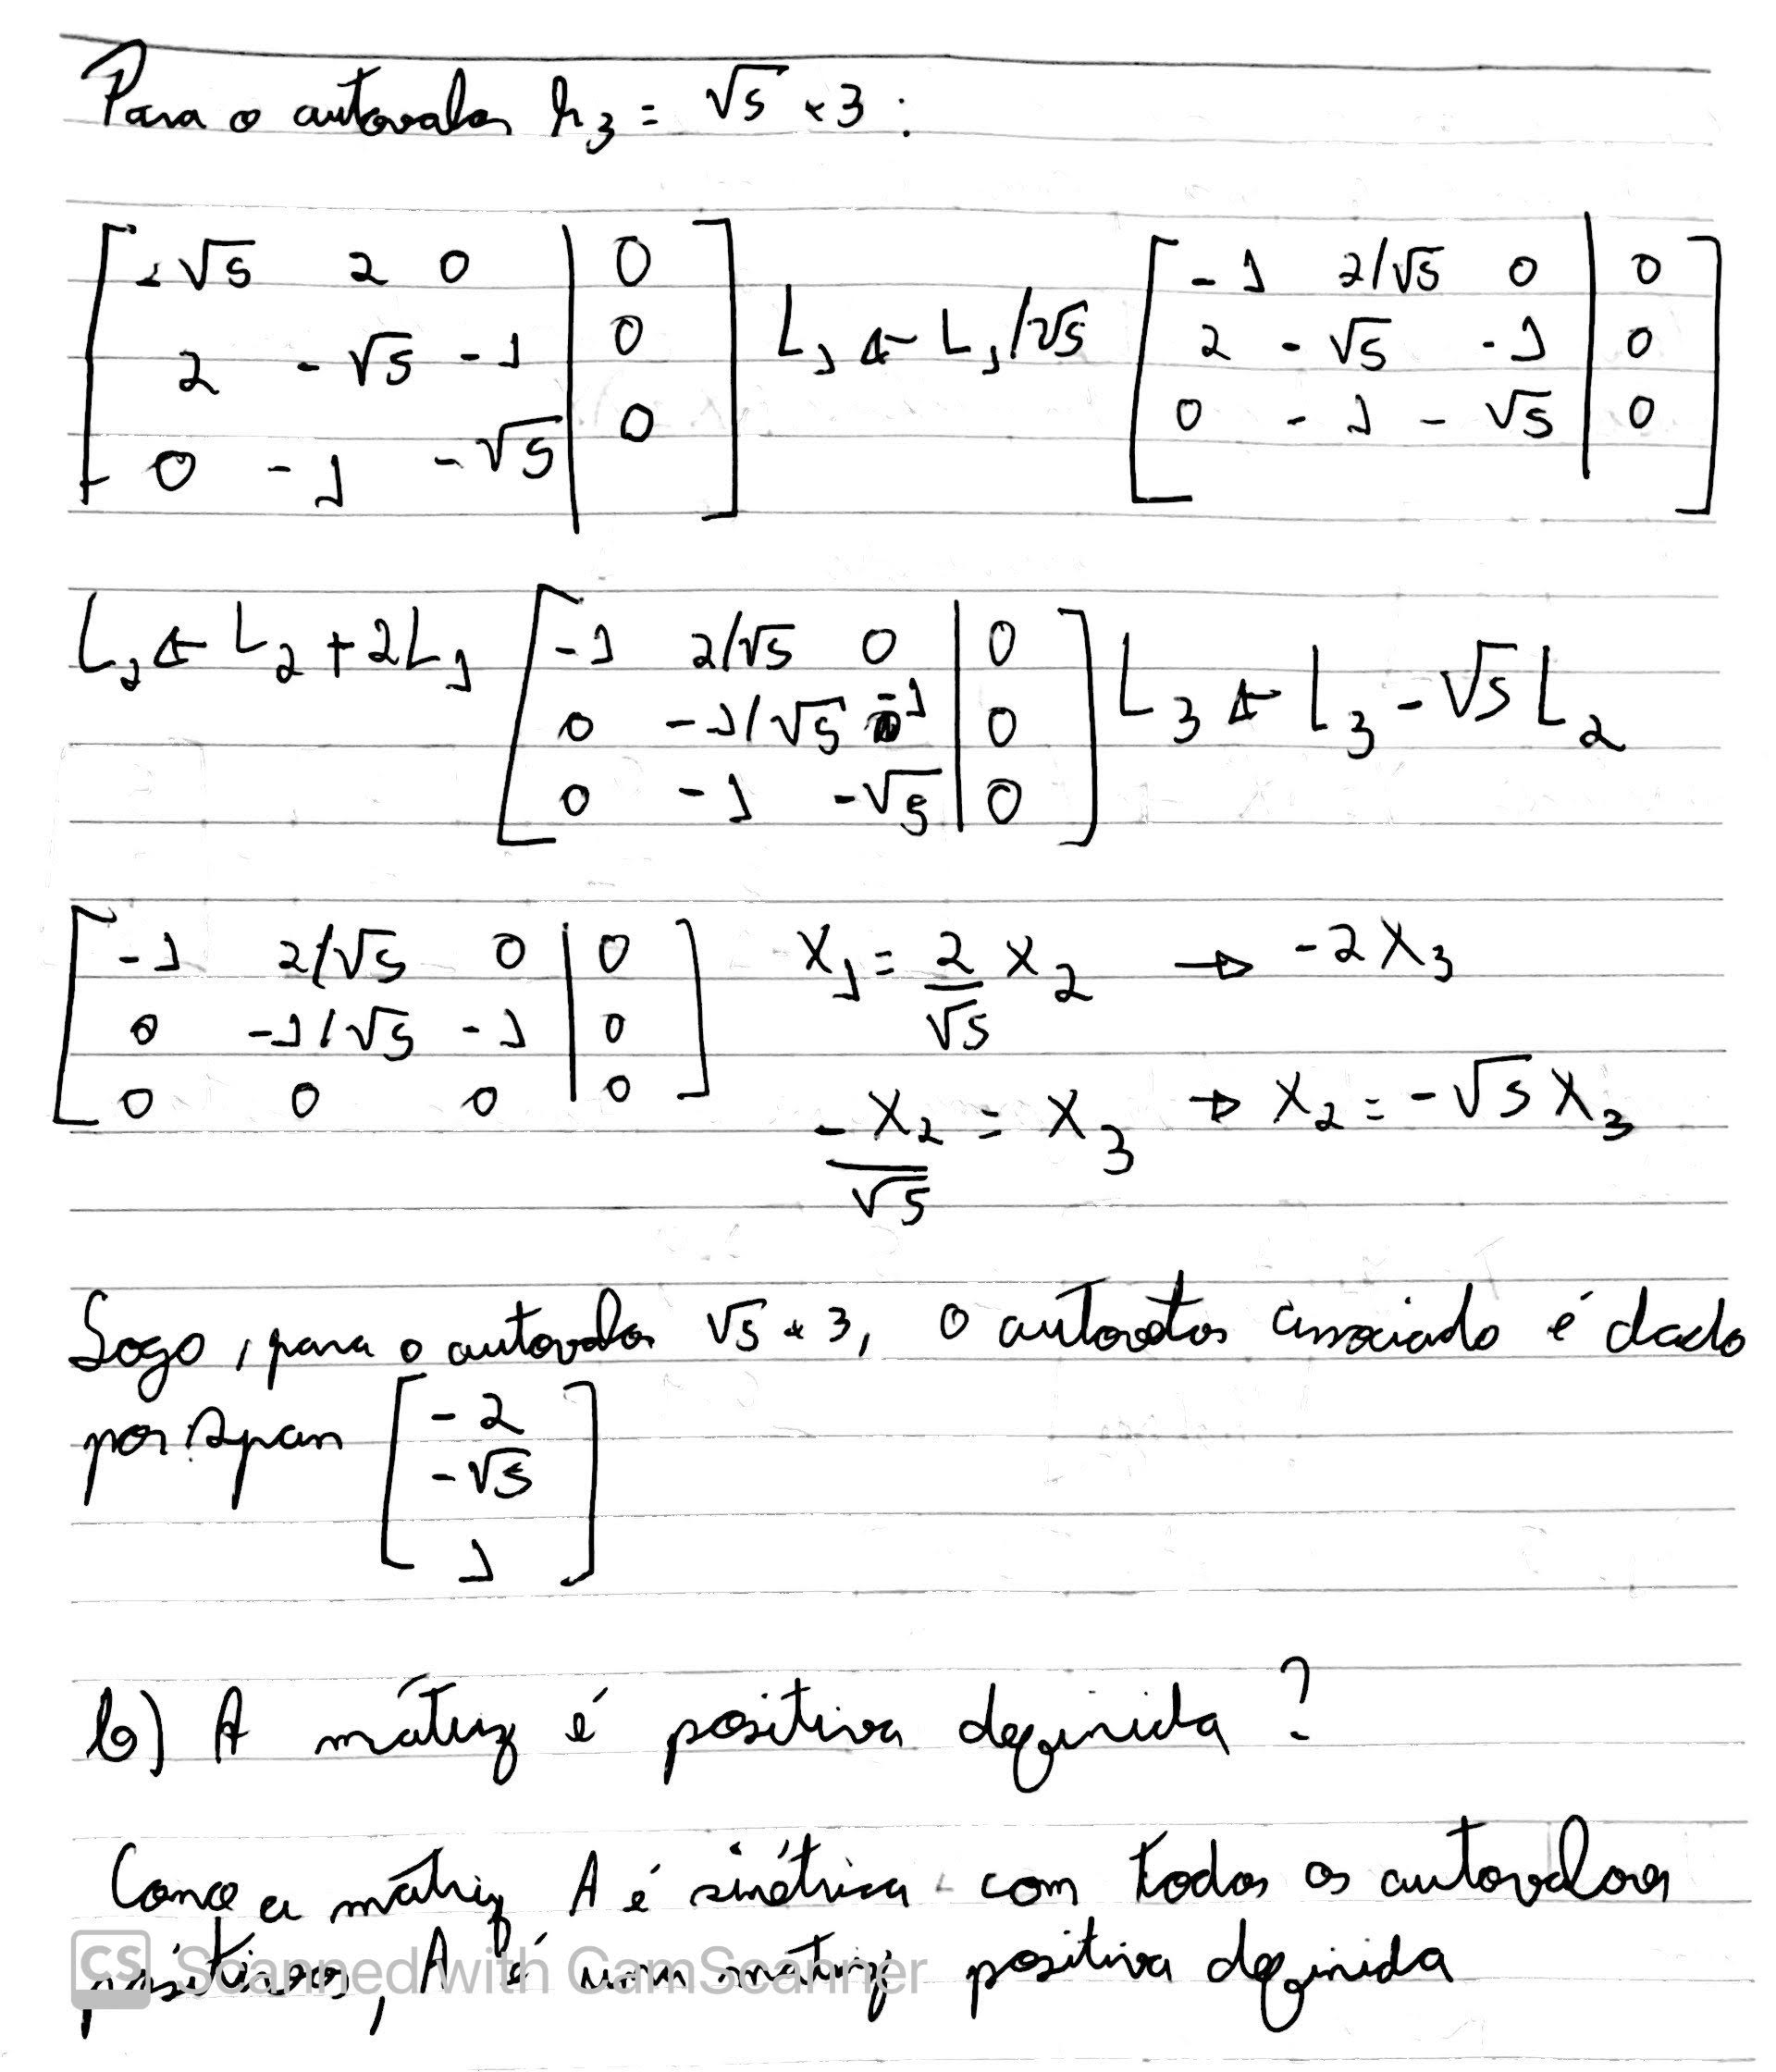 Para o autovalor λ₃ = √5 + 3 :
[ -√5 2 0 | 0 ] [ -1 2/√5 0 | 0 ]
[ 2 -√5 -1 | 0 ] L₁ ← L₁/√5 [ 2 -√5 -1 | 0 ]
[ 0 -1 -√5 | 0 ] [ 0 -1 -√5 | 0 ]
[ -1 2/√5 0 | 0 ]
L₂ ← L₂ + 2L₁ [ 0 -1/√5 -1 | 0 ] L₃ ← L₃ - √5 L₂
[ 0 -1 -√5 | 0 ]
[ -1 2/√5 0 | 0 ] X₁ = 2/√5 X₂ → -2X₃
[ 0 -1/√5 -1 | 0 ]
[ 0 0 0 | 0 ] -X₂/√5 = X₃ → X₂ = -√5 X₃
Logo, para o autovalor √5 + 3, o autovetor associado é dado
por: Span [ -2
-√5
1 ]
b) A mátriz é positiva definida?
Como a mátriz A é simétrica com todos os autovalores
positivos, A é uma mátriz positiva definida
CS Scanned with CamScanner